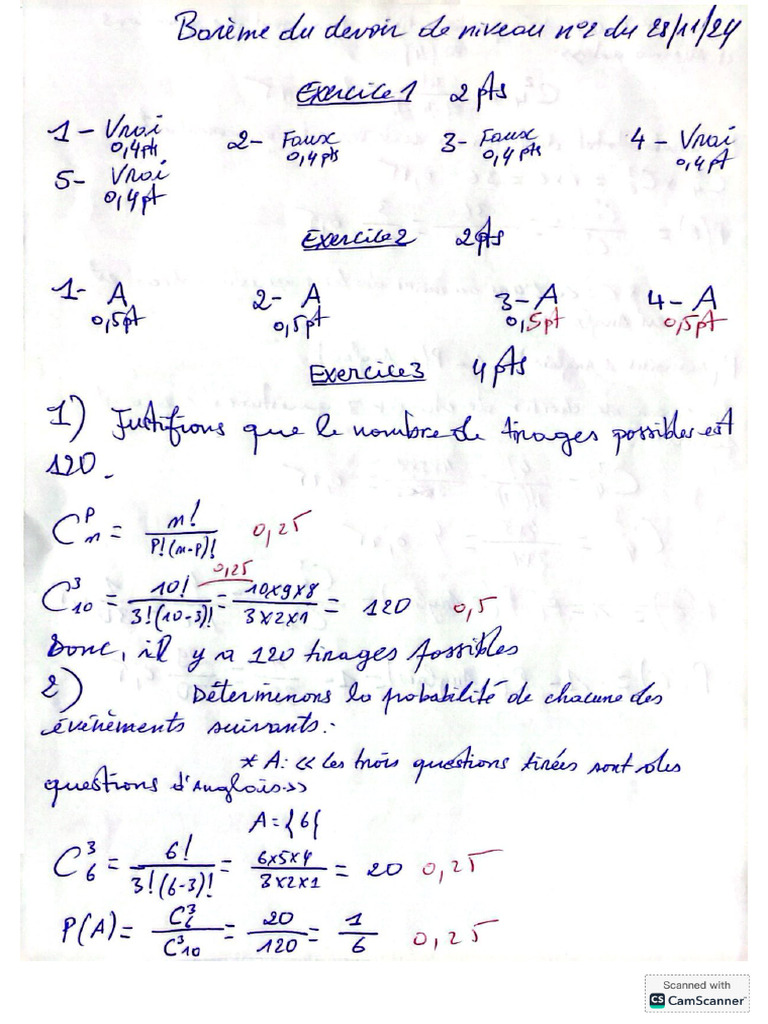 Barème du devoir de niveau n°2 du 28/11/24
Exercice 1 2 pts
1 - Vrai 2 - Faux 3 - Faux 4 - Vrai
0,4 pts 0,4 pts 0,4 pts 0,4 pt
5 - Vrai
0,4 pt
Exercice 2 2 pts
1 - A 2 - A 3 - A 4 - A
0,5pt 0,5pt 0,5pt 0,5pt
Exercice 3 4 pts
1) Justifions que le nombre de tirages possibles est
120.
C_n^p = n!/(p!(n-p)!) 0,25
0,25
C_10^3 = 10!/(3!(10-3)!) = (10x9x8)/(3x2x1) = 120 0,5
Donc, il y a 120 tirages possibles
2) Déterminons la probabilité de chacune des
événements suivants :
* A : << Les trois questions tirées sont des
questions d'Anglais >>
A = {6{
C_6^3 = 6!/(3!(6-3)!) = (6x5x4)/(3x2x1) = 20 0,25
P(A) = C_6^3/C_10^3 = 20/120 = 1/6 0,25
Scanned with
CS CamScanner